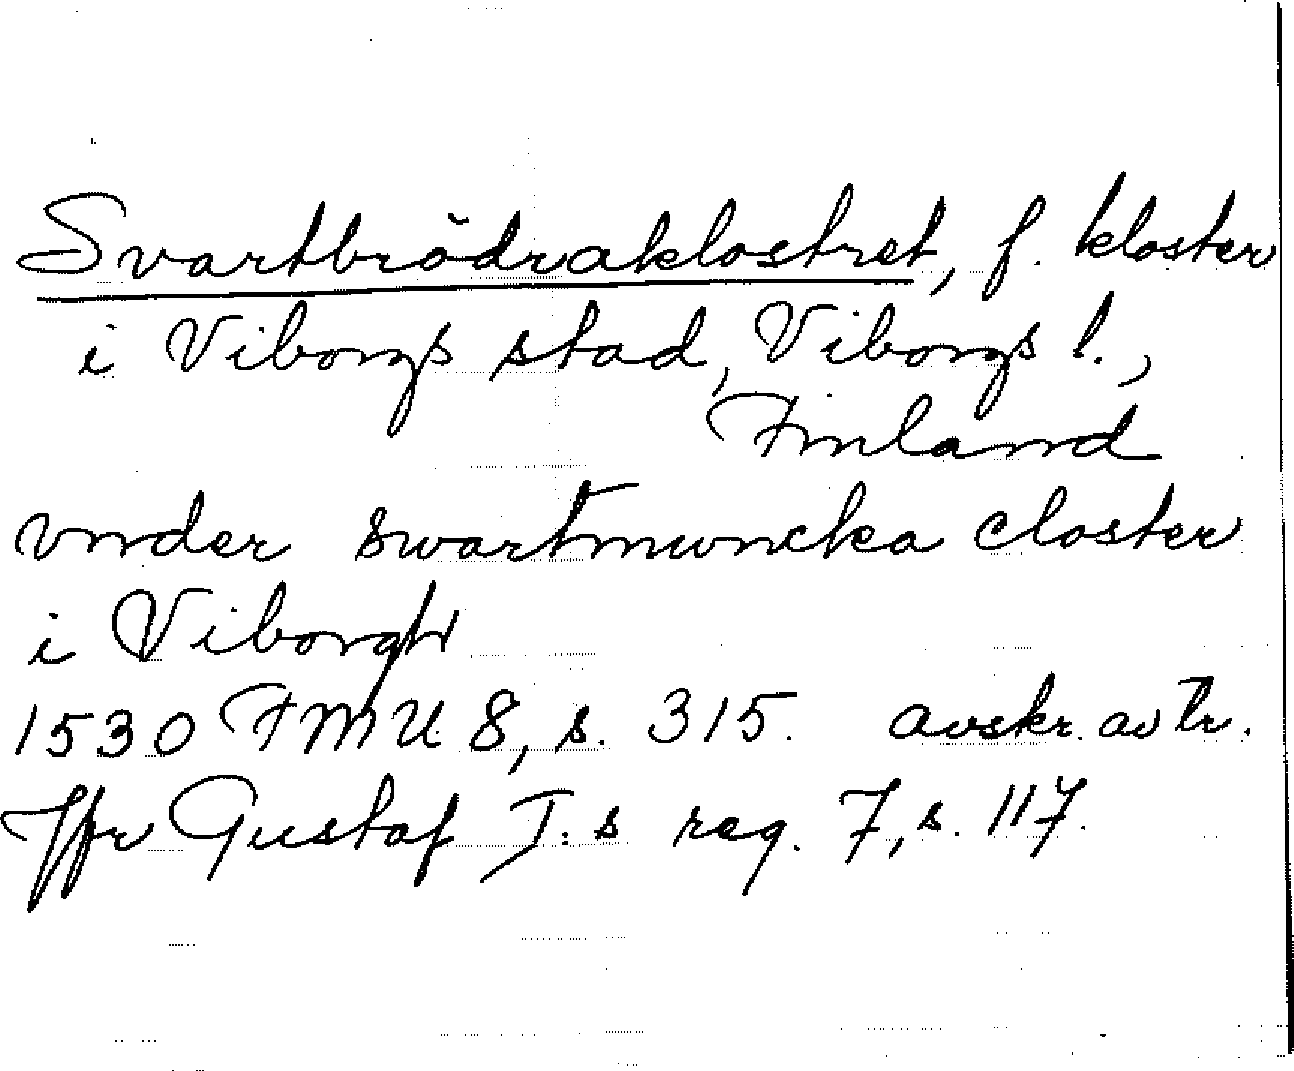 Svartbrödraklostret, f. kloster
i Viborgs stad, Viborgs l.,
Finland
vnder swartmuncka closter
i Viborgh
1530 FMU 8, s. 315. avskr. av tr.
Jfr Gustaf I:s reg. 7, s. 117.